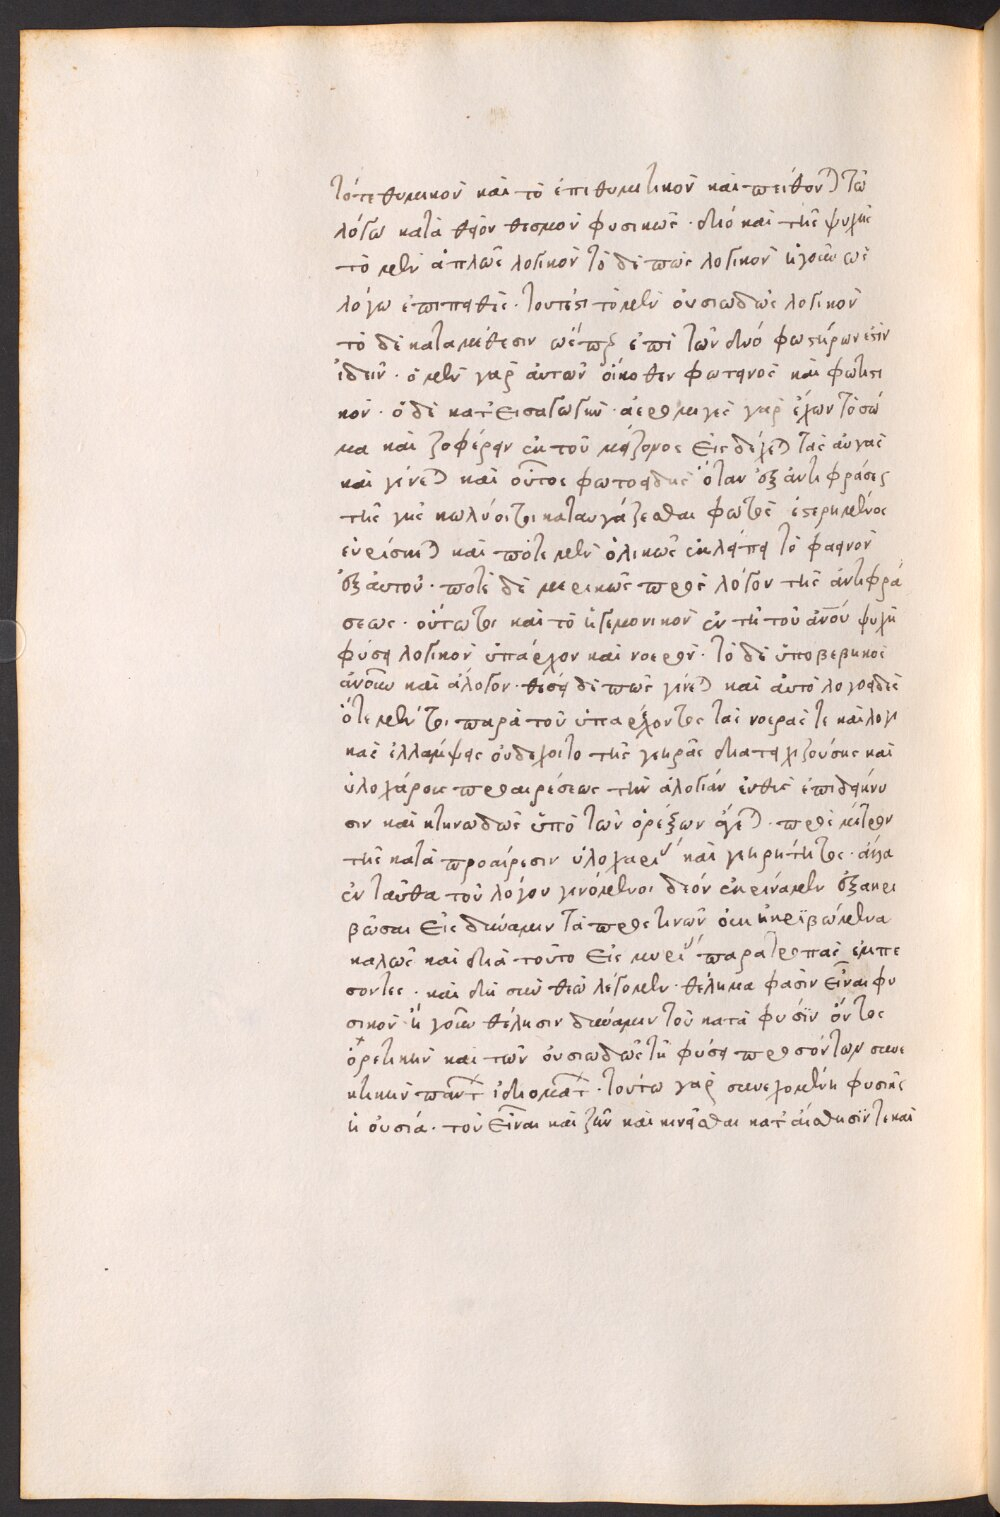 τό τε θυμικὸν καὶ τὸ ἐπιθυμητικὸν καὶ πείθον) τῶ
λόγω κατὰ θεῖον θεσμὸν φυσικῶς· διὸ καὶ τῆς ψυχῆς
τὸ μὲν ἁπλῶς λογικὸν τὸ δὲ πῶς λογικὸν ἤγουν ὡς
λόγω ἐπιπηθὲς· τουτέστι τὸ μὲν οὐσιωδῶς λογικὸν
τὸ δὲ κατὰ μέθεξιν ὥσπερ ἐπὶ τῶν δύο φωστήρων ἐστὶν
ἰδεῖν· ὁ μὲν γὰρ αὐτῶν οἴκοθεν φωτεινὸς καὶ φωτιστι
κὸν· ὁ δὲ κατ' εἰσαγωγὴν· ἀερομιγὲς γὰρ ἔχων τὸ σῶ
μα καὶ ζοφερὸν ἐκ τοῦ μείζονος εἰσδέχε) τὰς αὐγὰς
καὶ γίνε) καὶ οὗτος φωτοειδὴς ὅταν ἐξ ἀντιφράσεως
τῆς γῆς κωλύοιτο καταυγάζεσθαι φωτὸς ἐστερημένος
εὑρίσκε) καὶ πότε μὲν ὁλικῶς ἐκλείπει τὸ φαεινὸν
ἐξ αὐτοῦ· ποτὲ δὲ μερικῶς πρὸς λόγον τῆς ἀντιφρά
σεως· οὕτω τοι καὶ τὸ ἡγεμονικὸν ἐν τῆ τοῦ ἀνου ψυχῆ
φύσει λογικὸν ὑπάρχον καὶ νοερὸν· τὸ δὲ ὑποβεβηκὸς
ἄνουν καὶ ἄλογον· θέσει δὲ πῶς γίνε) καὶ αὐτὸ λογοειδὲς
ὅτε μέν τοι παρὰ τοῦ ὑπερέχοντος τὰς νοεράς τε καὶ λογι
κὰς ἐλλάμψεις οὐ δέχοιτο τῆς γεηρᾶς διατειχιζούσης καὶ
ὑλοχάρους προαιρέσεως τὴν ἀλογίαν εὐθὺς ἐπιδείκνυ
σιν καὶ κτηνωδῶς ὑπὸ τῶν ὀρέξεων ἄγε)· πρὸς μέτρον
τῆς κατὰ προαίρεσιν ὑλοχαρ καὶ γεηρότητος· ἀλλὰ
ἐνταῦθα τοῦ λόγου γινόμενοι δέον ἐκρίναμεν ἐξακρι
βῶσαι εἰς δύναμιν τὰ πρὸς τινῶν οὐκ ἠκριβωμένα
καλῶς καὶ διὰ τοῦτο εἰς μυρί παρατροπὰς ἐμπε
σόντες· καὶ δὴ σὺν θεῶ λέγομεν· θέλημα φασὶν εἶναι φυ
σικὸν ἤγουν θέλησιν δύναμιν τοῦ κατὰ φύσιν ὄντος
ὀρεκτικὴν καὶ τῶν οὐσιωδῶς τῆ φύσει προσόντων συνε
κτικὴν πάντ ἰδιωμάτ· τούτω γὰρ συνεχομένη φυσικῶς
ἡ οὐσία· τοῦ εἶναι καὶ ζῆν καὶ κινεῖσθαι κατ' αἴσθησίν τε καὶ